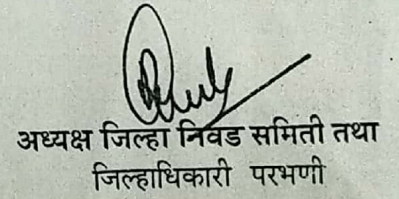 अध्यक्ष जिल्हा निवड समिती तथा
जिल्हाधिकारी परभणी